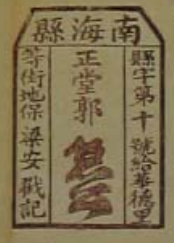 南海縣
縣字第十號給華德里
正堂郭
等街地保梁安戳記